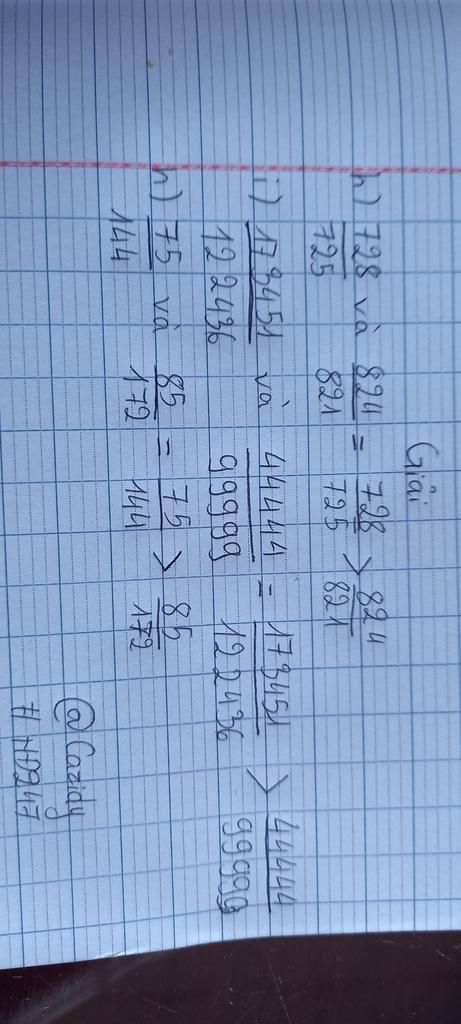 Giải
h) 728/725 và 824/821 = 728/725 > 824/821
i) 173451/122436 và 44444/99999 = 173451/122436 > 44444/99999
h) 75/144 và 85/172 = 75/144 > 85/172
@Cazidy
#HD247